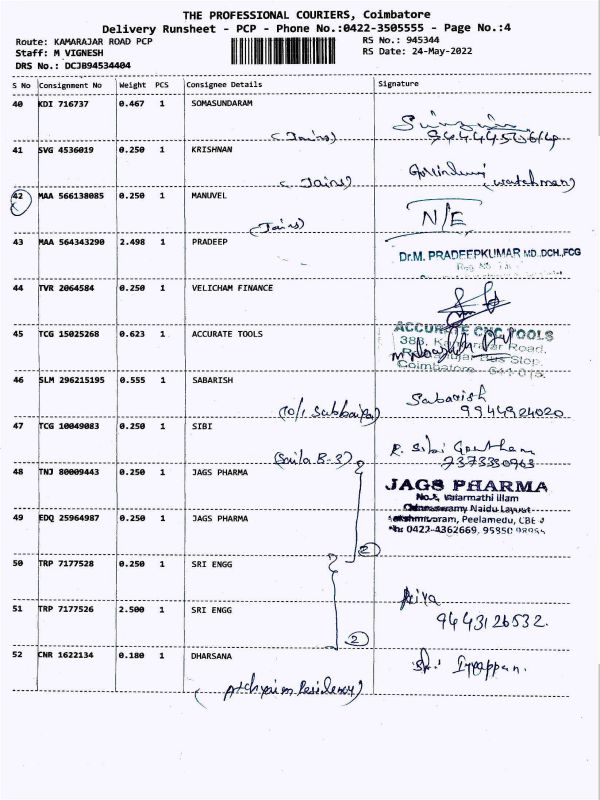 THE PROFESSIONAL COURIERS, Coimbatore
Delivery Runsheet - PCP - Phone No.:0422-3505555 - Page No.:4
Route: KAMARAJAR ROAD PCP
RS No.: 945344
Staff: M VIGNESH
RS Date: 24-May-2022
DRS No.: DCJB94534404
S No Consignment No Weight PCS Consignee Details Signature
40 KDI 716737 0.467 1 SOMASUNDARAM
(Jains)
41 SVG 4536019 0.250 1 KRISHNAN
(Jains) (watchman)
42 MAA 566138085 0.250 1 MANUVEL
(Jains) N/E
43 MAA 564343290 2.498 1 PRADEEP
Dr.M. PRADEEPKUMAR MD.,DCH.,FCG
44 TVR 2064584 0.250 1 VELICHAM FINANCE
45 TCG 15025268 0.623 1 ACCURATE TOOLS
ACCURATE CNC TOOLS
Road,
Bus Stop,
Coimbatore
46 SLM 296215195 0.555 1 SABARISH
Sabarish
9944924020
47 TCG 10049083 0.250 1 SIBI
R. Sibi Gowtham
7373330963
(Saila B-3)
48 TNJ 80009443 0.250 1 JAGS PHARMA
JAGS PHARMA
Naidu Layout
Peelamedu, CBE
0422-4362669,
49 EDQ 25964987 0.250 1 JAGS PHARMA
2
50 TRP 7177528 0.250 1 SRI ENGG
51 TRP 7177526 2.500 1 SRI ENGG
9443126532.
2
52 CNR 1622134 0.180 1 DHARSANA
Iyyappan.
Residency)